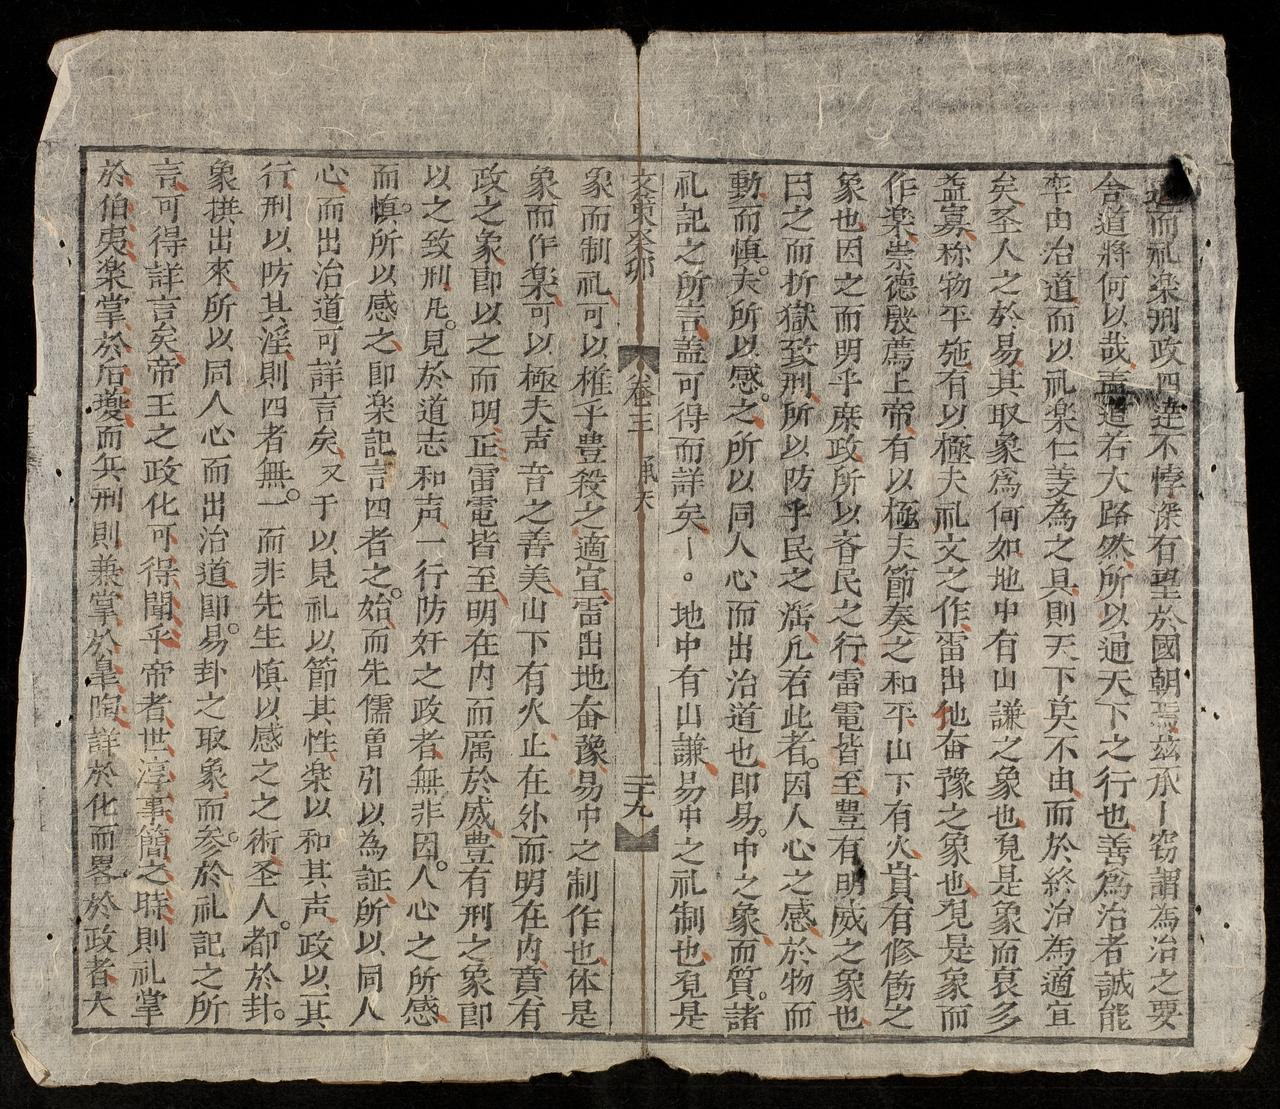 道而礼楽刑政四達不悖深有望於國朝焉兹承丨窃謂為治之要
舍道將何以哉盖道若大路然所以通天下之行也善為治者誠能
率由治道而以礼楽仁义為之具則天下莫不由而於終治為適宜
矣圣人之於易其取象為何如地中有山謙之象也覌是象而裒多
益寡称物平施有以極夫礼文之作雷出地奋豫之象也覌是象而
作楽崇德殷薦上帝有以極夫節奏之和平山下有火賁有修飭之
象也因之而明乎庶政所以吝民之行雷電皆至豊有明威之象也
因之而折獄致刑所以防乎民之淫凡若此者因人心之感於物而
動而慎夫所以感之所以同人心而出治道也即易中之象而質諸
礼記之所言盖可得而詳矣丨。地中有山謙易中之礼制也覌是
文策癸卯 卷三 承天 二十九
象而制礼可以椎乎豊殺之適宜雷出地奋豫易中之制作也体是
象而作楽可以極夫声音之善美山下有火止在外而明在内賁有
政之象即以之而明正雷電皆至明在内而厲於威豊有刑之象即
以之致刑凡見於道志和声一行防奸之政者無非因人心之所感
而慎所以感之即楽記言四者之始而先儒曽引以為証所以同人
心而出治道可詳言矣又于以見礼以節其性楽以和其声政以其
行刑以防其淫則四者無一而非先生慎以感之之術圣人都於卦
象拱出來所以同人心而出治道即易卦之取象而参於礼記之所
言可得詳言矣帝王之政化可得聞乎帝者世淳事簡之時則礼掌
於伯夷楽掌於后夔而兵刑則兼掌於皐陶詳於化而畧於政者大